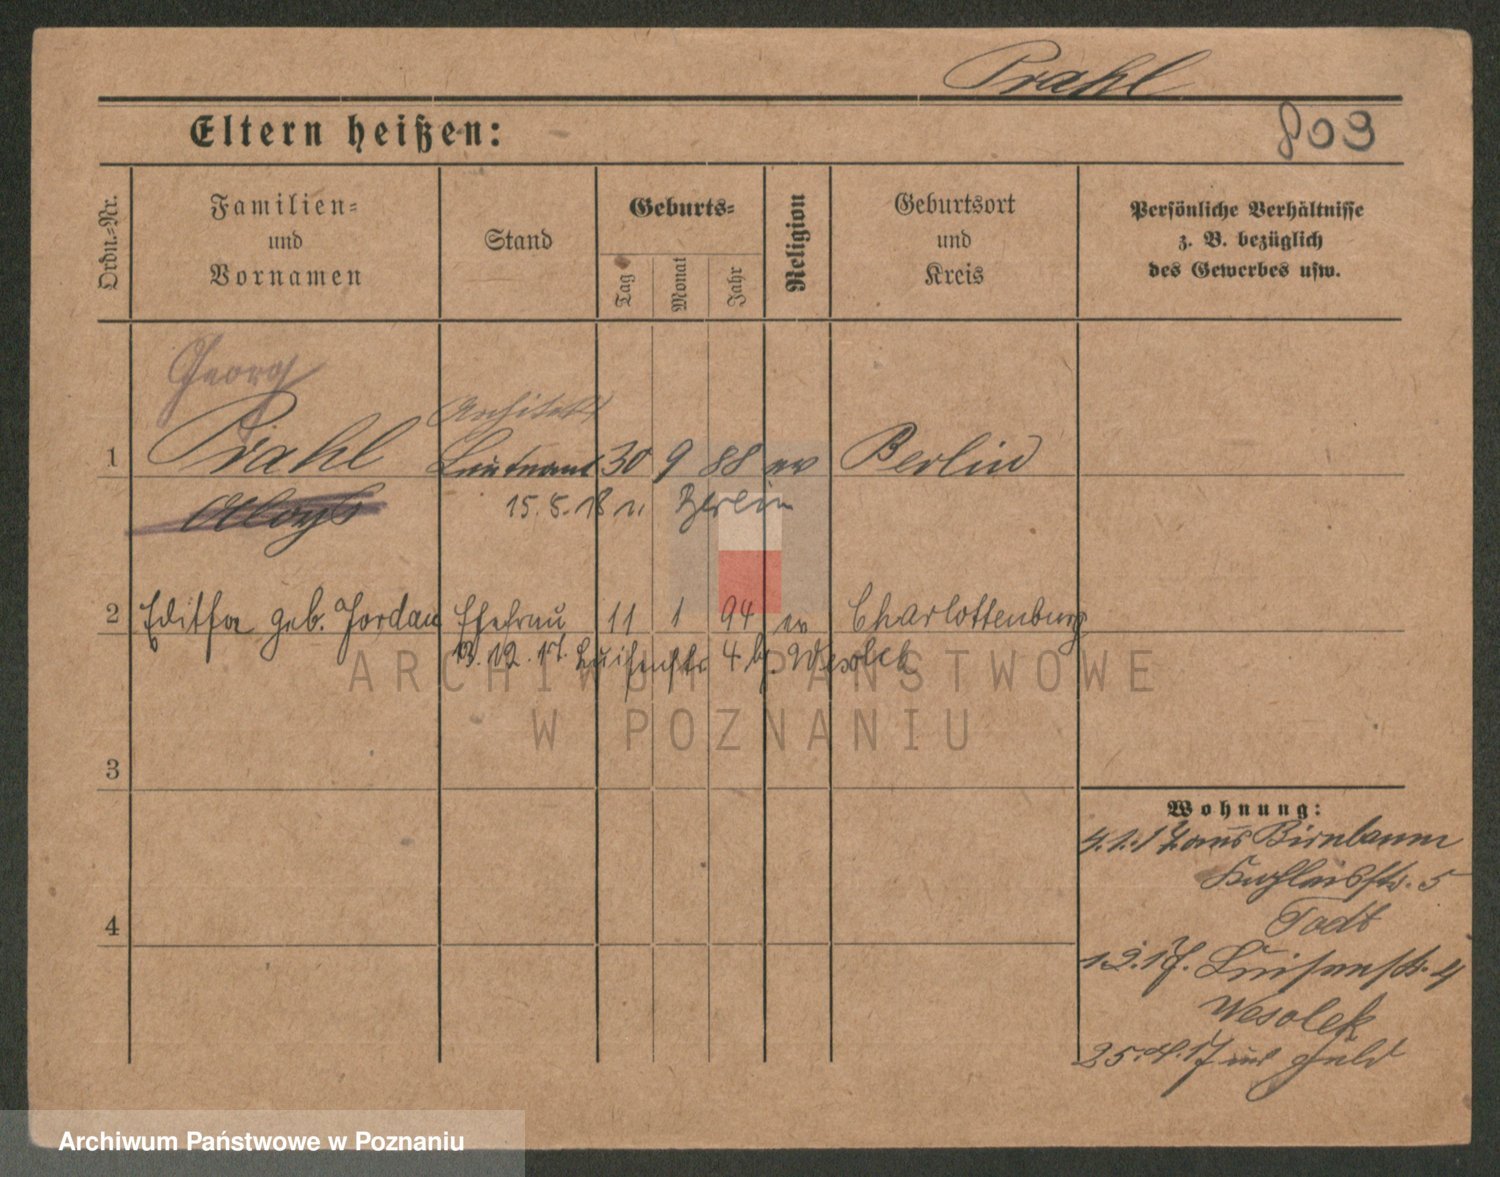 Prahl
Eltern heißen:
803
Ordn.-Nr.
Familien-
und
Vornamen
Stand
Geburts-
Tag
Monat
Jahr
Religion
Geburtsort
und
Kreis
Persönliche Verhältnisse
z. B. bezüglich
des Gewerbes usw.
Georg
Architekt
1 Prahl Leutnant 30 9 88 ev Berlin
Aloys 15.5.18 n. Berlin
2 Editha geb. Jordan Ehefrau 11 1 94 ev Charlottenburg
13.12.17. Luisenstr 4 b. Wesolek
ARCHIWUM PAŃSTWOWE
W POZNANIU
3
Wohnung:
4.1.17 aus Birnbaum
5
Todt
4
1.2.17. Luisenstr. 4
Wesolek
25.4.17 ins Feld
Archiwum Państwowe w Poznaniu